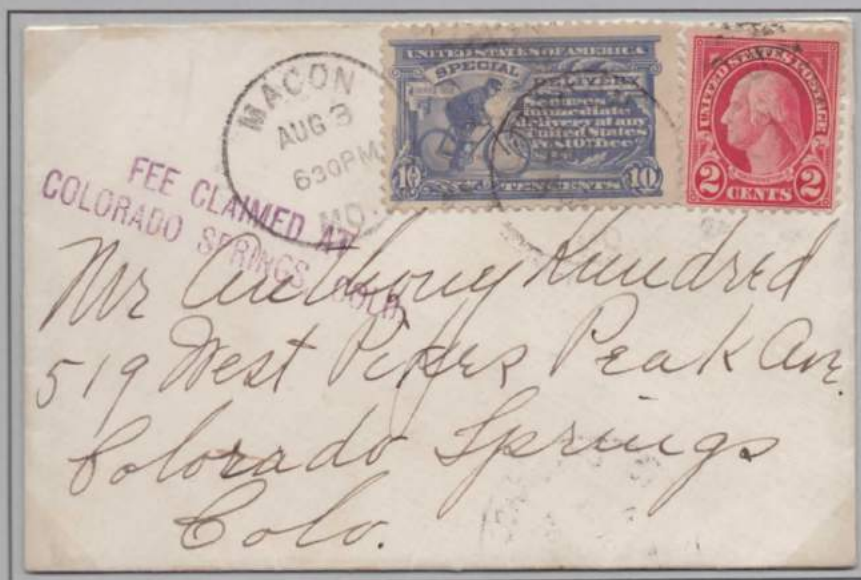 MACON
AUG 3
630PM
MO.
UNITED STATES OF AMERICA
SPECIAL DELIVERY
Secures
immediate
delivery at any
United States
Post Office
10 TEN CENTS 10
UNITED STATES POSTAGE
2 CENTS 2
FEE CLAIMED AT
COLORADO SPRINGS, COLO.
Mr Anthony Kundred
519 West Pikes Peak Ave.
Colorado Springs
Colo.